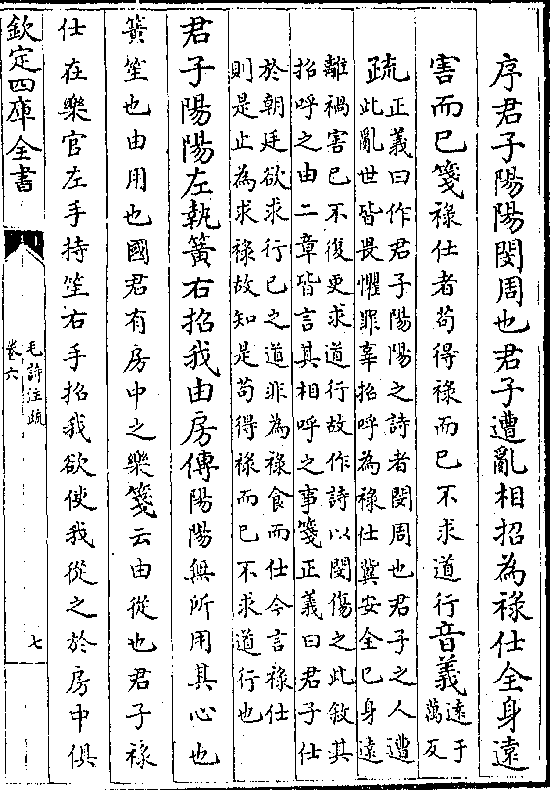 序君子陽陽閔周也君子遭亂相招為祿仕全身遠
害而已箋祿仕者苟得祿而已不求道行音義遠于
萬反
疏正義曰作君子陽陽之詩者閔周也君子之人遭
此亂世皆畏懼罪辜招呼為祿仕冀安全已身遠
離禍害已不復更求道行故作詩以閔傷之此敘其
招呼之由二章皆言其相呼之事箋正義曰君子仕
於朝廷欲求行已之道非為祿食而仕今言祿仕
則是止為求祿故知是苟得祿而已不求道行也
君子陽陽左執簧右招我由房傳陽陽無所用其心也
簧笙也由用也國君有房中之樂箋云由從也君子祿
仕在樂官左手持笙右手招我欲使我從之於房中俱
欽定四庫全書
毛詩注疏
卷六
七